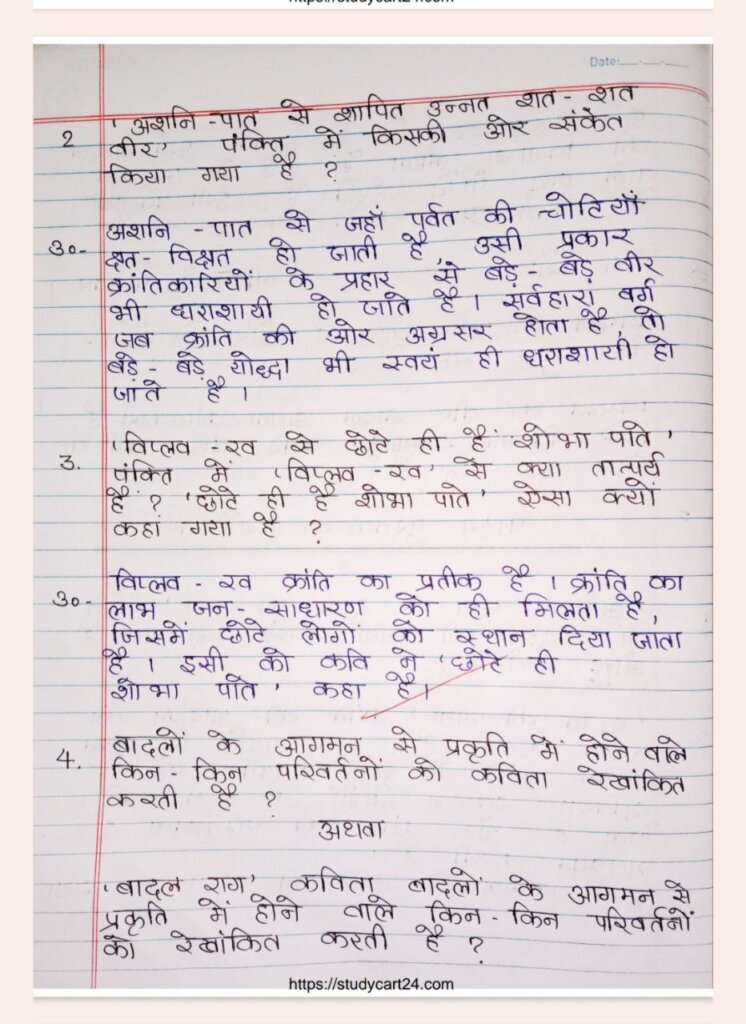 https://studycart24.com
Date:
2 'अशनि-पात से शापित उन्नत शत-शत
वीर' पंक्ति में किसकी ओर संकेत
किया गया है ?
उ०- अशनि-पात से जहाँ पर्वत की चोटियाँ
क्षत-विक्षत हो जाती है उसी प्रकार
क्रांतिकारियों के प्रहार से बड़े-बड़े वीर
भी धराशायी हो जाते है। सर्वहारा वर्ग
जब क्रांति की ओर अग्रसर होता है, तो
बड़े-बड़े योद्धा भी स्वयं ही धराशायी हो
जाते है।
3. 'विप्लव-रव से छोटे ही हैं शोभा पाते'
पंक्ति में 'विप्लव-रव' से क्या तात्पर्य
है ? 'छोटे ही हैं शोभा पाते' ऐसा क्यों
कहा गया है ?
उ०- विप्लव-रव क्रांति का प्रतीक है। क्रांति का
लाभ जन-साधारण को ही मिलता है,
जिसमें छोटे लोगो को स्थान दिया जाता
है। इसी को कवि ने 'छोटे ही
शोभा पाते' कहा है।
4. बादलों के आगमन से प्रकृति में होने वाले
किन-किन परिवर्तनों को कविता रेखांकित
करती है ?
अथवा
'बादल राग' कविता बादलों के आगमन से
प्रकृति में होने वाले किन-किन परिवर्तनों
को रेखांकित करती है ?
https://studycart24.com